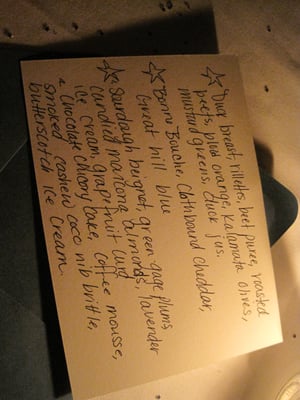 ☆ Duck breast, rillettes, beet puree, roasted
beets, blood orange, Kalamata olives,
mustard greens, duck jus.
☆ Bonne Bouche, Clothbound cheddar,
Great hill blue
☆ Sourdough beignet, green gage plums
candied marcona almonds, lavender
ice cream, grapefruit curd
& chocolate chicory cake, coffee mousse,
smoked cashew coco nib brittle,
butterscotch ice cream.